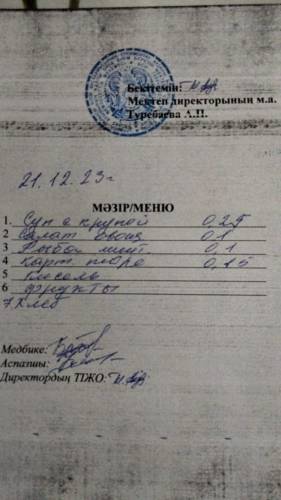 Бекітемін:
Мектеп директорының м.а.
Туребаева А.П.
21.12.23г
МӘЗІР/МЕНЮ
1. Суп с крупой 0,25
2 Салат овощ 0,1
3 Рыба мин. 0,1
4 Карт пюре 0,15
5 Кисель
6 Фрукты
7 Хлеб
Медбике:
Аспазшы:
Директордың ТІЖО: